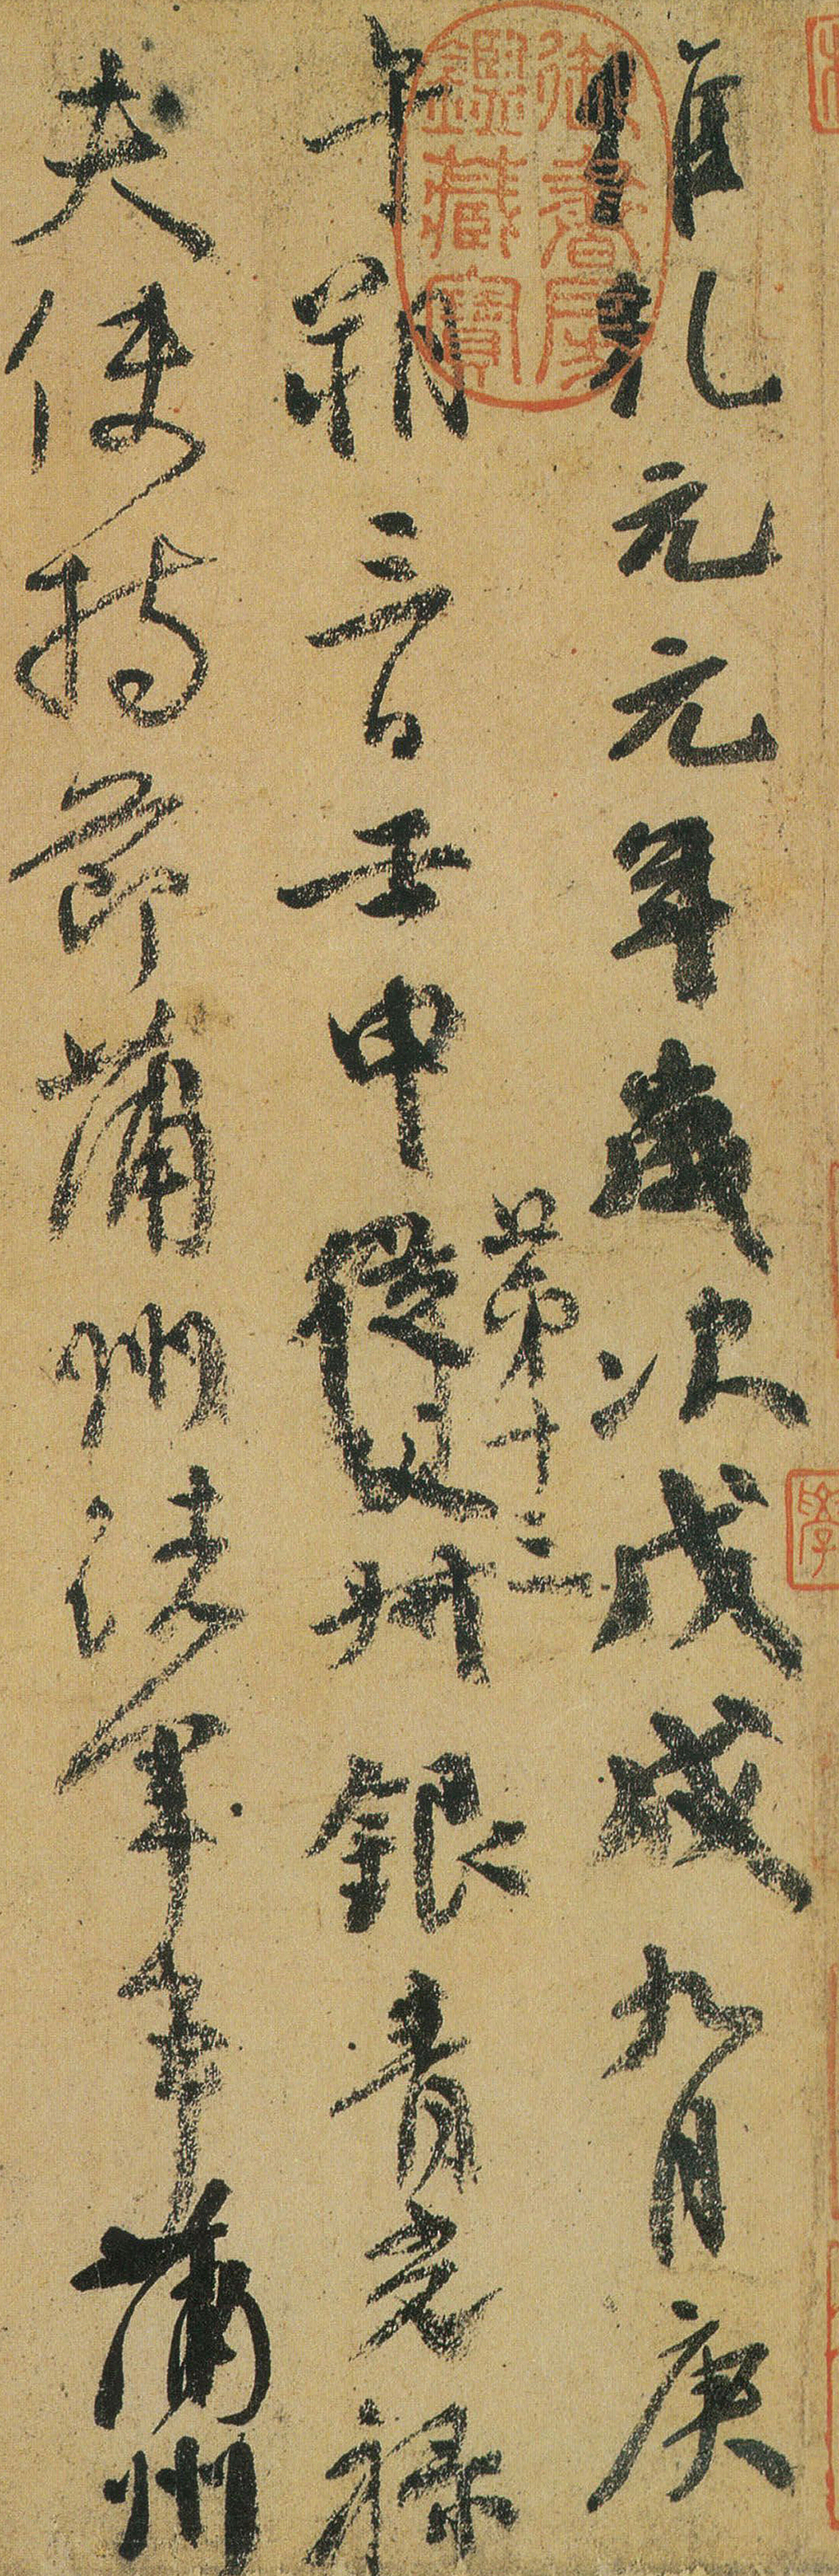 維乾元元年歲次戊戌九月庚
第十三
午朔三日壬申從父叔銀青光祿
夫使持節蒲州諸軍事蒲州
御書房
鑑藏寶